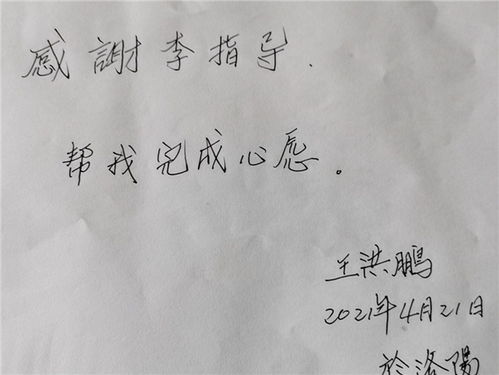 感謝李指导.
帮我完成心愿。
王洪鹏
2021年4月21日
於洛陽